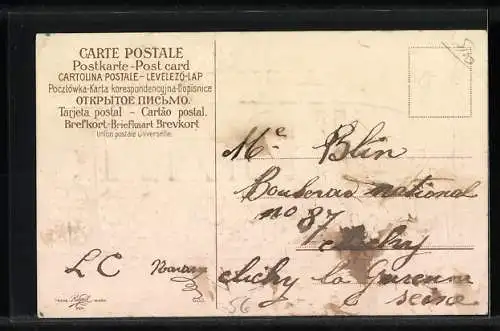 CARTE POSTALE
Postkarte - Post card
CARTOLINA POSTALE - LEVELEZŐ-LAP
Pocztówka-Karta korespondencyjna-Dopisnice
ОТКРЫТОЕ ПИСЬМО.
Tarjeta postal - Cartão postal.
Brefkort-Briefkaart Brevkort
Union postale universelle.
Me Blin
Boulevar national
no 87
clichy
clichy la Garenne
seine
LC
56